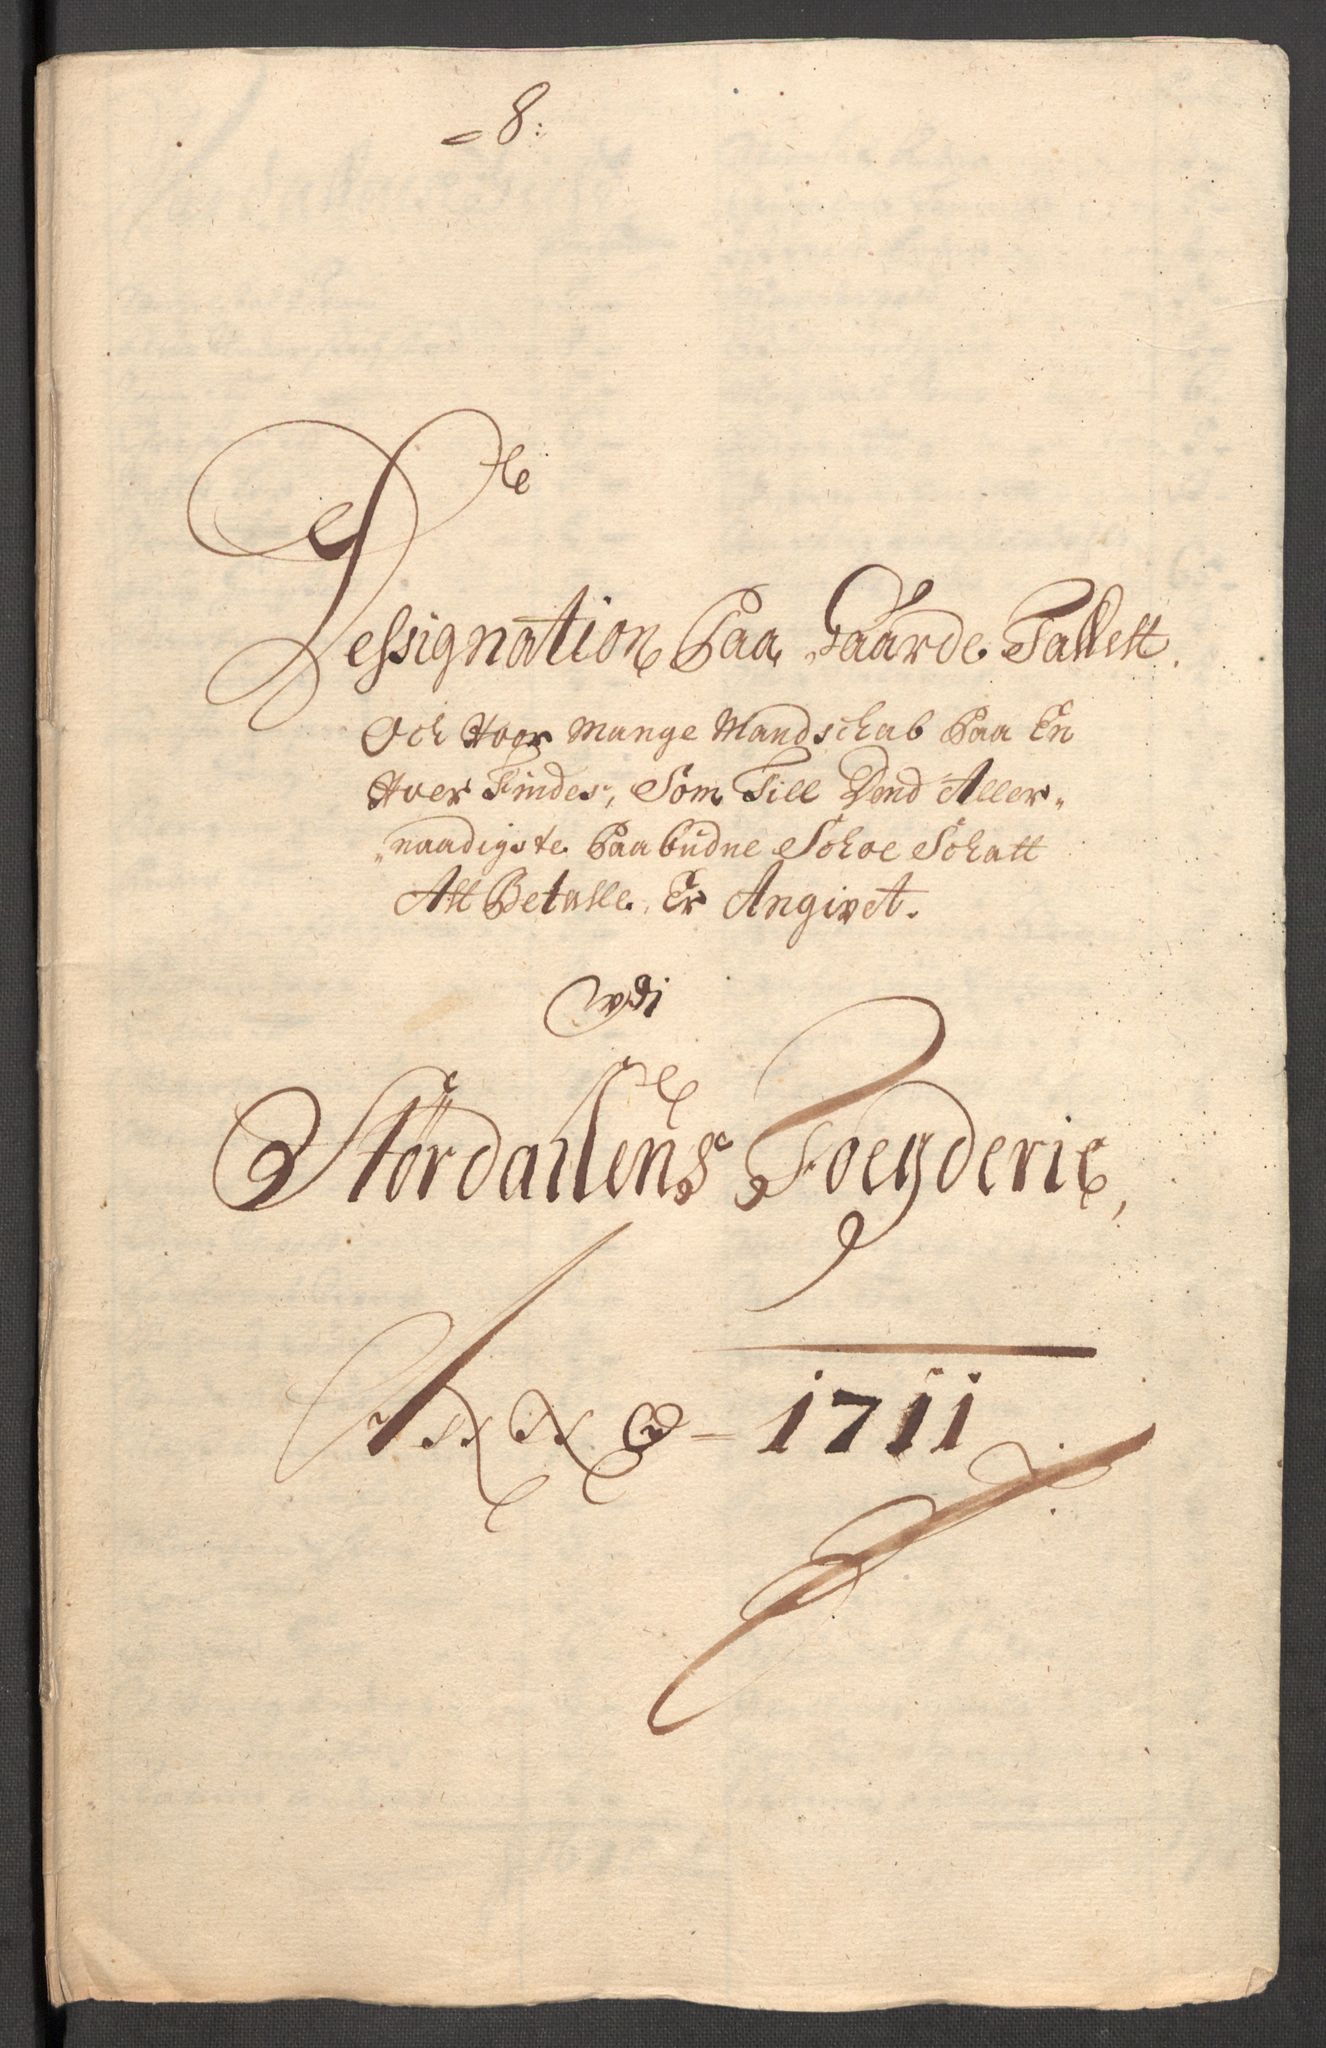 8:
Dessignation Paa Gaarde Tallett.
Och Hvor Mange Mandschab Paa En
Hver Findes, Som Till Dend Aller„
„naadigste Paabudne Schoe Schatt
Att Betalle, Er Angivet.
udi
Størdallens Foegderie,
1711